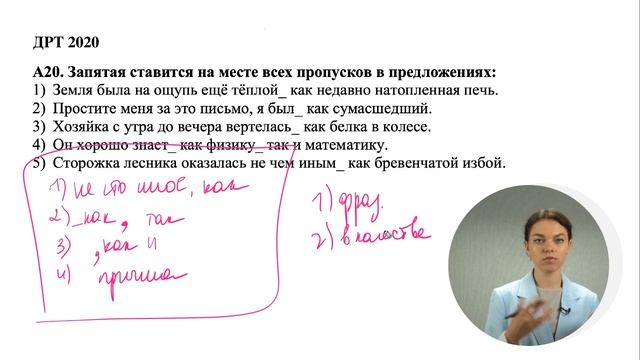 ДРТ 2020
А20. Запятая ставится на месте всех пропусков в предложениях:
1) Земля была на ощупь ещё тёплой_ как недавно натопленная печь.
2) Простите меня за это письмо, я был_ как сумасшедший.
3) Хозяйка с утра до вечера вертелась_ как белка в колесе.
4) Он хорошо знает_ как физику_ так и математику.
5) Сторожка лесника оказалась не чем иным_ как бревенчатой избой.
1) не что иное, как
2) _как, так
3) , как и
4) причина
1) фраз.
2) в качестве